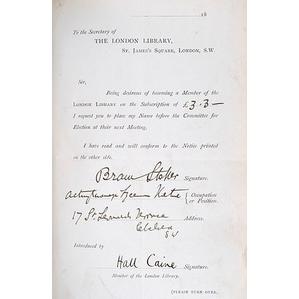 18
To the Secretary of
THE LONDON LIBRARY,
ST. JAMES'S SQUARE, LONDON, S.W.
Sir,
Being desirous of becoming a Member of the
LONDON LIBRARY on the Subscription of £3.3—
I request you to place my Name before the Committee for
Election at their next Meeting.
I have read and will conform to the Notice printed
on the other side.
Bram Stoker Signature.
Acting Manager Lyceum Occupation or Position.
17 St. Leonards Terrace Address.
Chelsea
SW
Introduced by
Hall Caine Signature.
Member of the London Library.
[PLEASE TURN OVER.